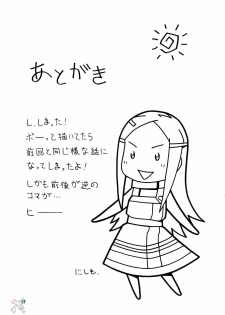 あとがき
し、しまった!
ボーっと描いてたら
前回と同じ様な話に
なってしまったよ!
しかも前後が逆の
コマが…
ヒ――――
にしも.